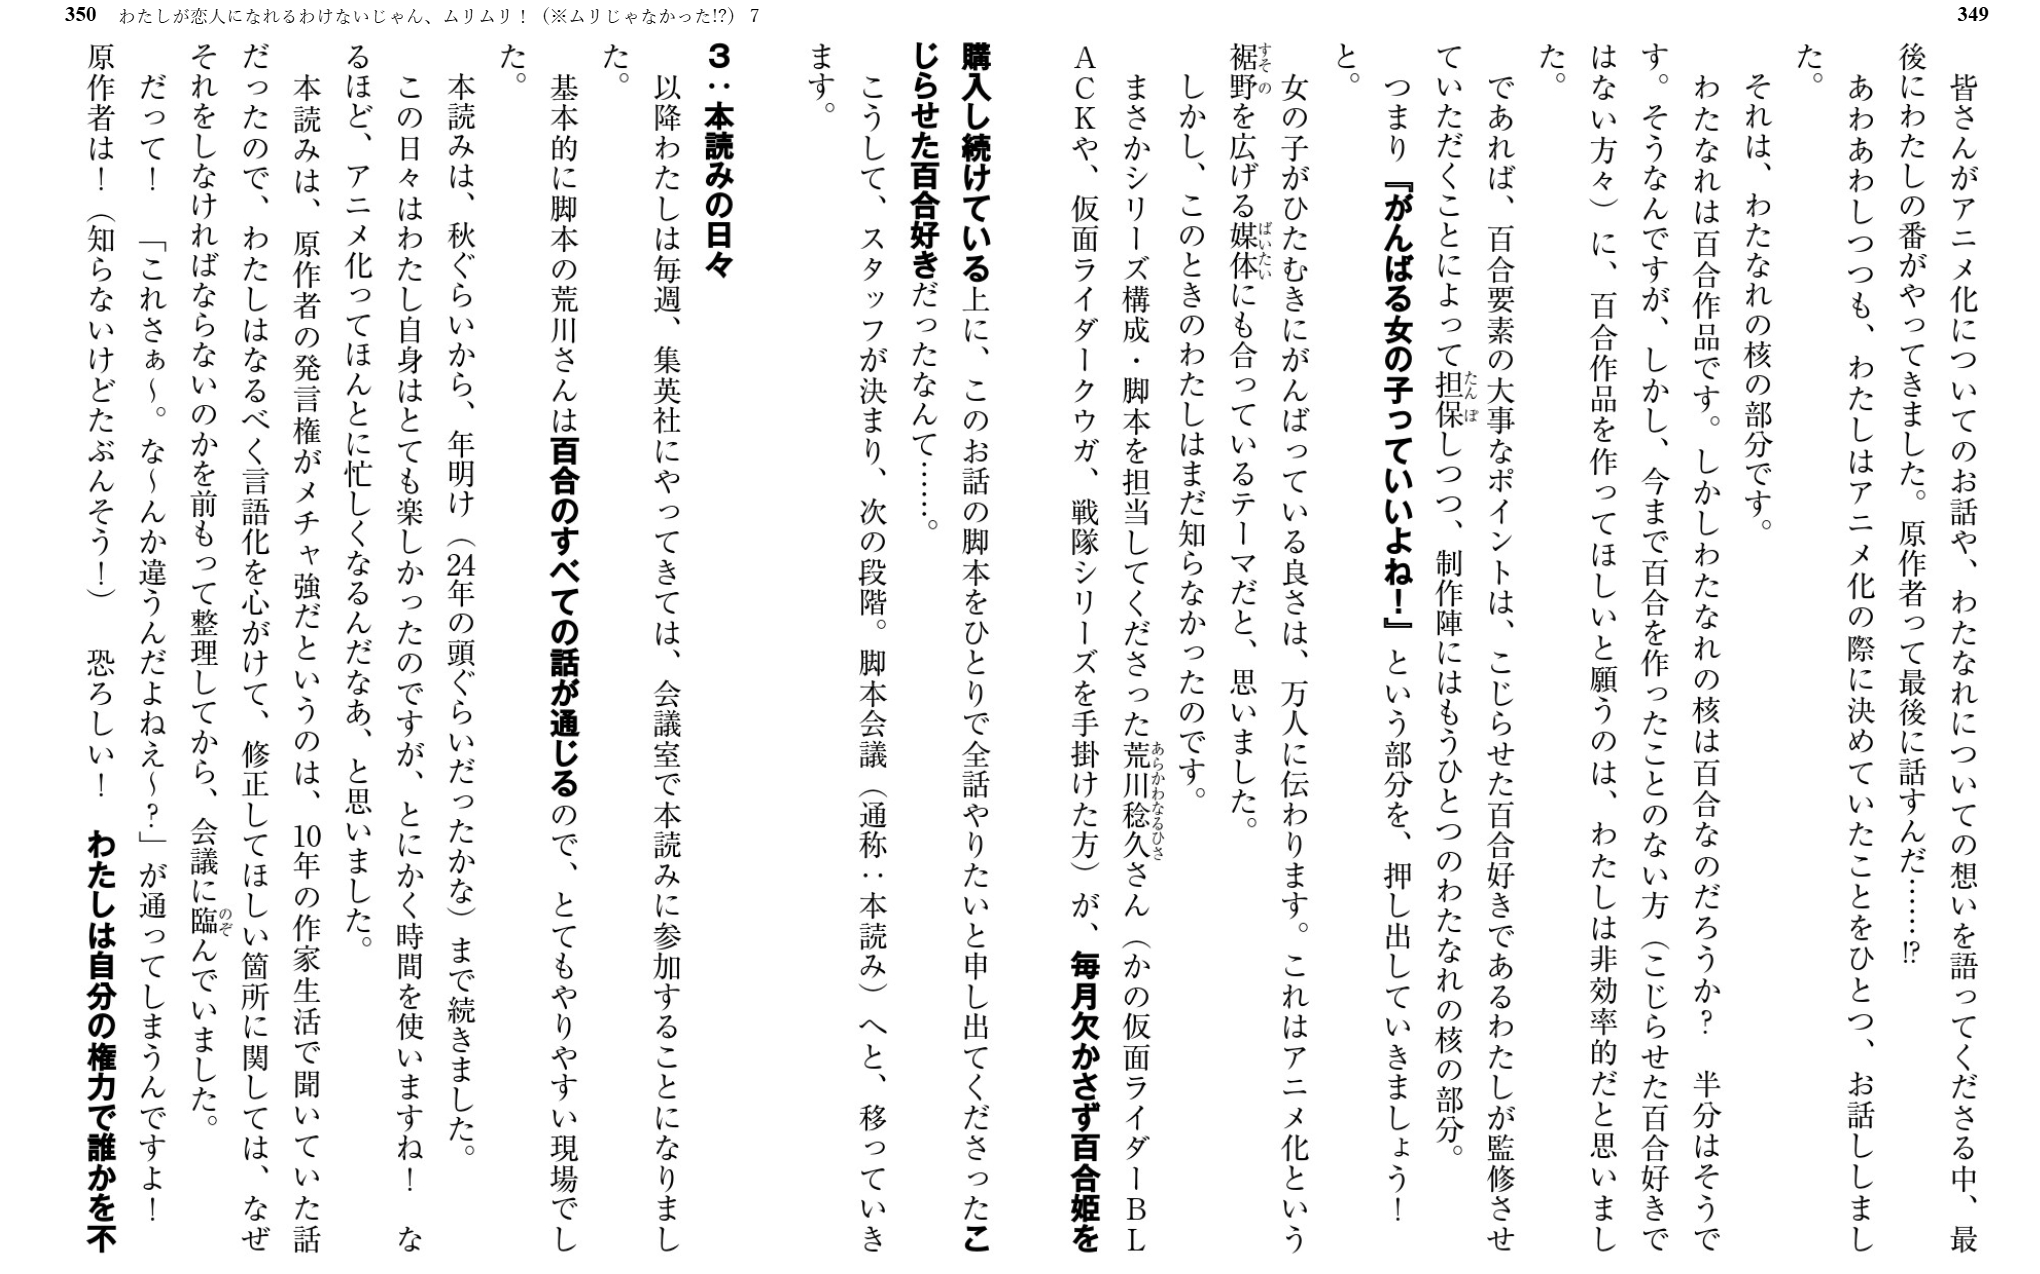 349
皆さんがアニメ化についてのお話や、わたなれについての想いを語ってくださる中、最
後にわたしの番がやってきました。原作者って最後に話すんだ……!?
あわあわしつつも、わたしはアニメ化の際に決めていたことをひとつ、お話ししまし
た。
それは、わたなれの核の部分です。
わたなれは百合作品です。しかしわたなれの核は百合なのだろうか？　半分はそうで
す。そうなんですが、しかし、今まで百合を作ったことのない方（こじらせた百合好きで
はない方々）に、百合作品を作ってほしいと願うのは、わたしは非効率的だと思いまし
た。
であれば、百合要素の大事なポイントは、こじらせた百合好きであるわたしが監修させ
ていただくことによって担保しつつ、制作陣にはもうひとつのわたなれの核の部分。
たんぽ
つまり『がんばる女の子っていいよね！』という部分を、押し出していきましょう！
と。
女の子がひたむきにがんばっている良さは、万人に伝わります。これはアニメ化という
裾野を広げる媒体にも合っているテーマだと、思いました。
すその
ばいたい
しかし、このときのわたしはまだ知らなかったのです。
まさかシリーズ構成・脚本を担当してくださった荒川稔久さん（かの仮面ライダーＢＬ
あらかわなるひさ
ＡＣＫや、仮面ライダークウガ、戦隊シリーズを手掛けた方）が、毎月欠かさず百合姫を
350 わたしが恋人になれるわけないじゃん、ムリムリ！（※ムリじゃなかった!?） 7
購入し続けている上に、このお話の脚本をひとりで全話やりたいと申し出てくださったこ
じらせた百合好きだったなんて……。
こうして、スタッフが決まり、次の段階。脚本会議（通称：本読み）へと、移っていき
ます。
３：本読みの日々
以降わたしは毎週、集英社にやってきては、会議室で本読みに参加することになりまし
た。
基本的に脚本の荒川さんは百合のすべての話が通じるので、とてもやりやすい現場でし
た。
本読みは、秋ぐらいから、年明け（24年の頭ぐらいだったかな）まで続きました。
この日々はわたし自身はとても楽しかったのですが、とにかく時間を使いますね！　な
るほど、アニメ化ってほんとに忙しくなるんだなあ、と思いました。
本読みは、原作者の発言権がメチャ強だというのは、10年の作家生活で聞いていた話
だったので、わたしはなるべく言語化を心がけて、修正してほしい箇所に関しては、なぜ
それをしなければならないのかを前もって整理してから、会議に臨んでいました。
のぞ
だって！　「これさぁ〜。な〜んか違うんだよねえ〜？」が通ってしまうんですよ！
原作者は！（知らないけどたぶんそう！）　恐ろしい！　わたしは自分の権力で誰かを不